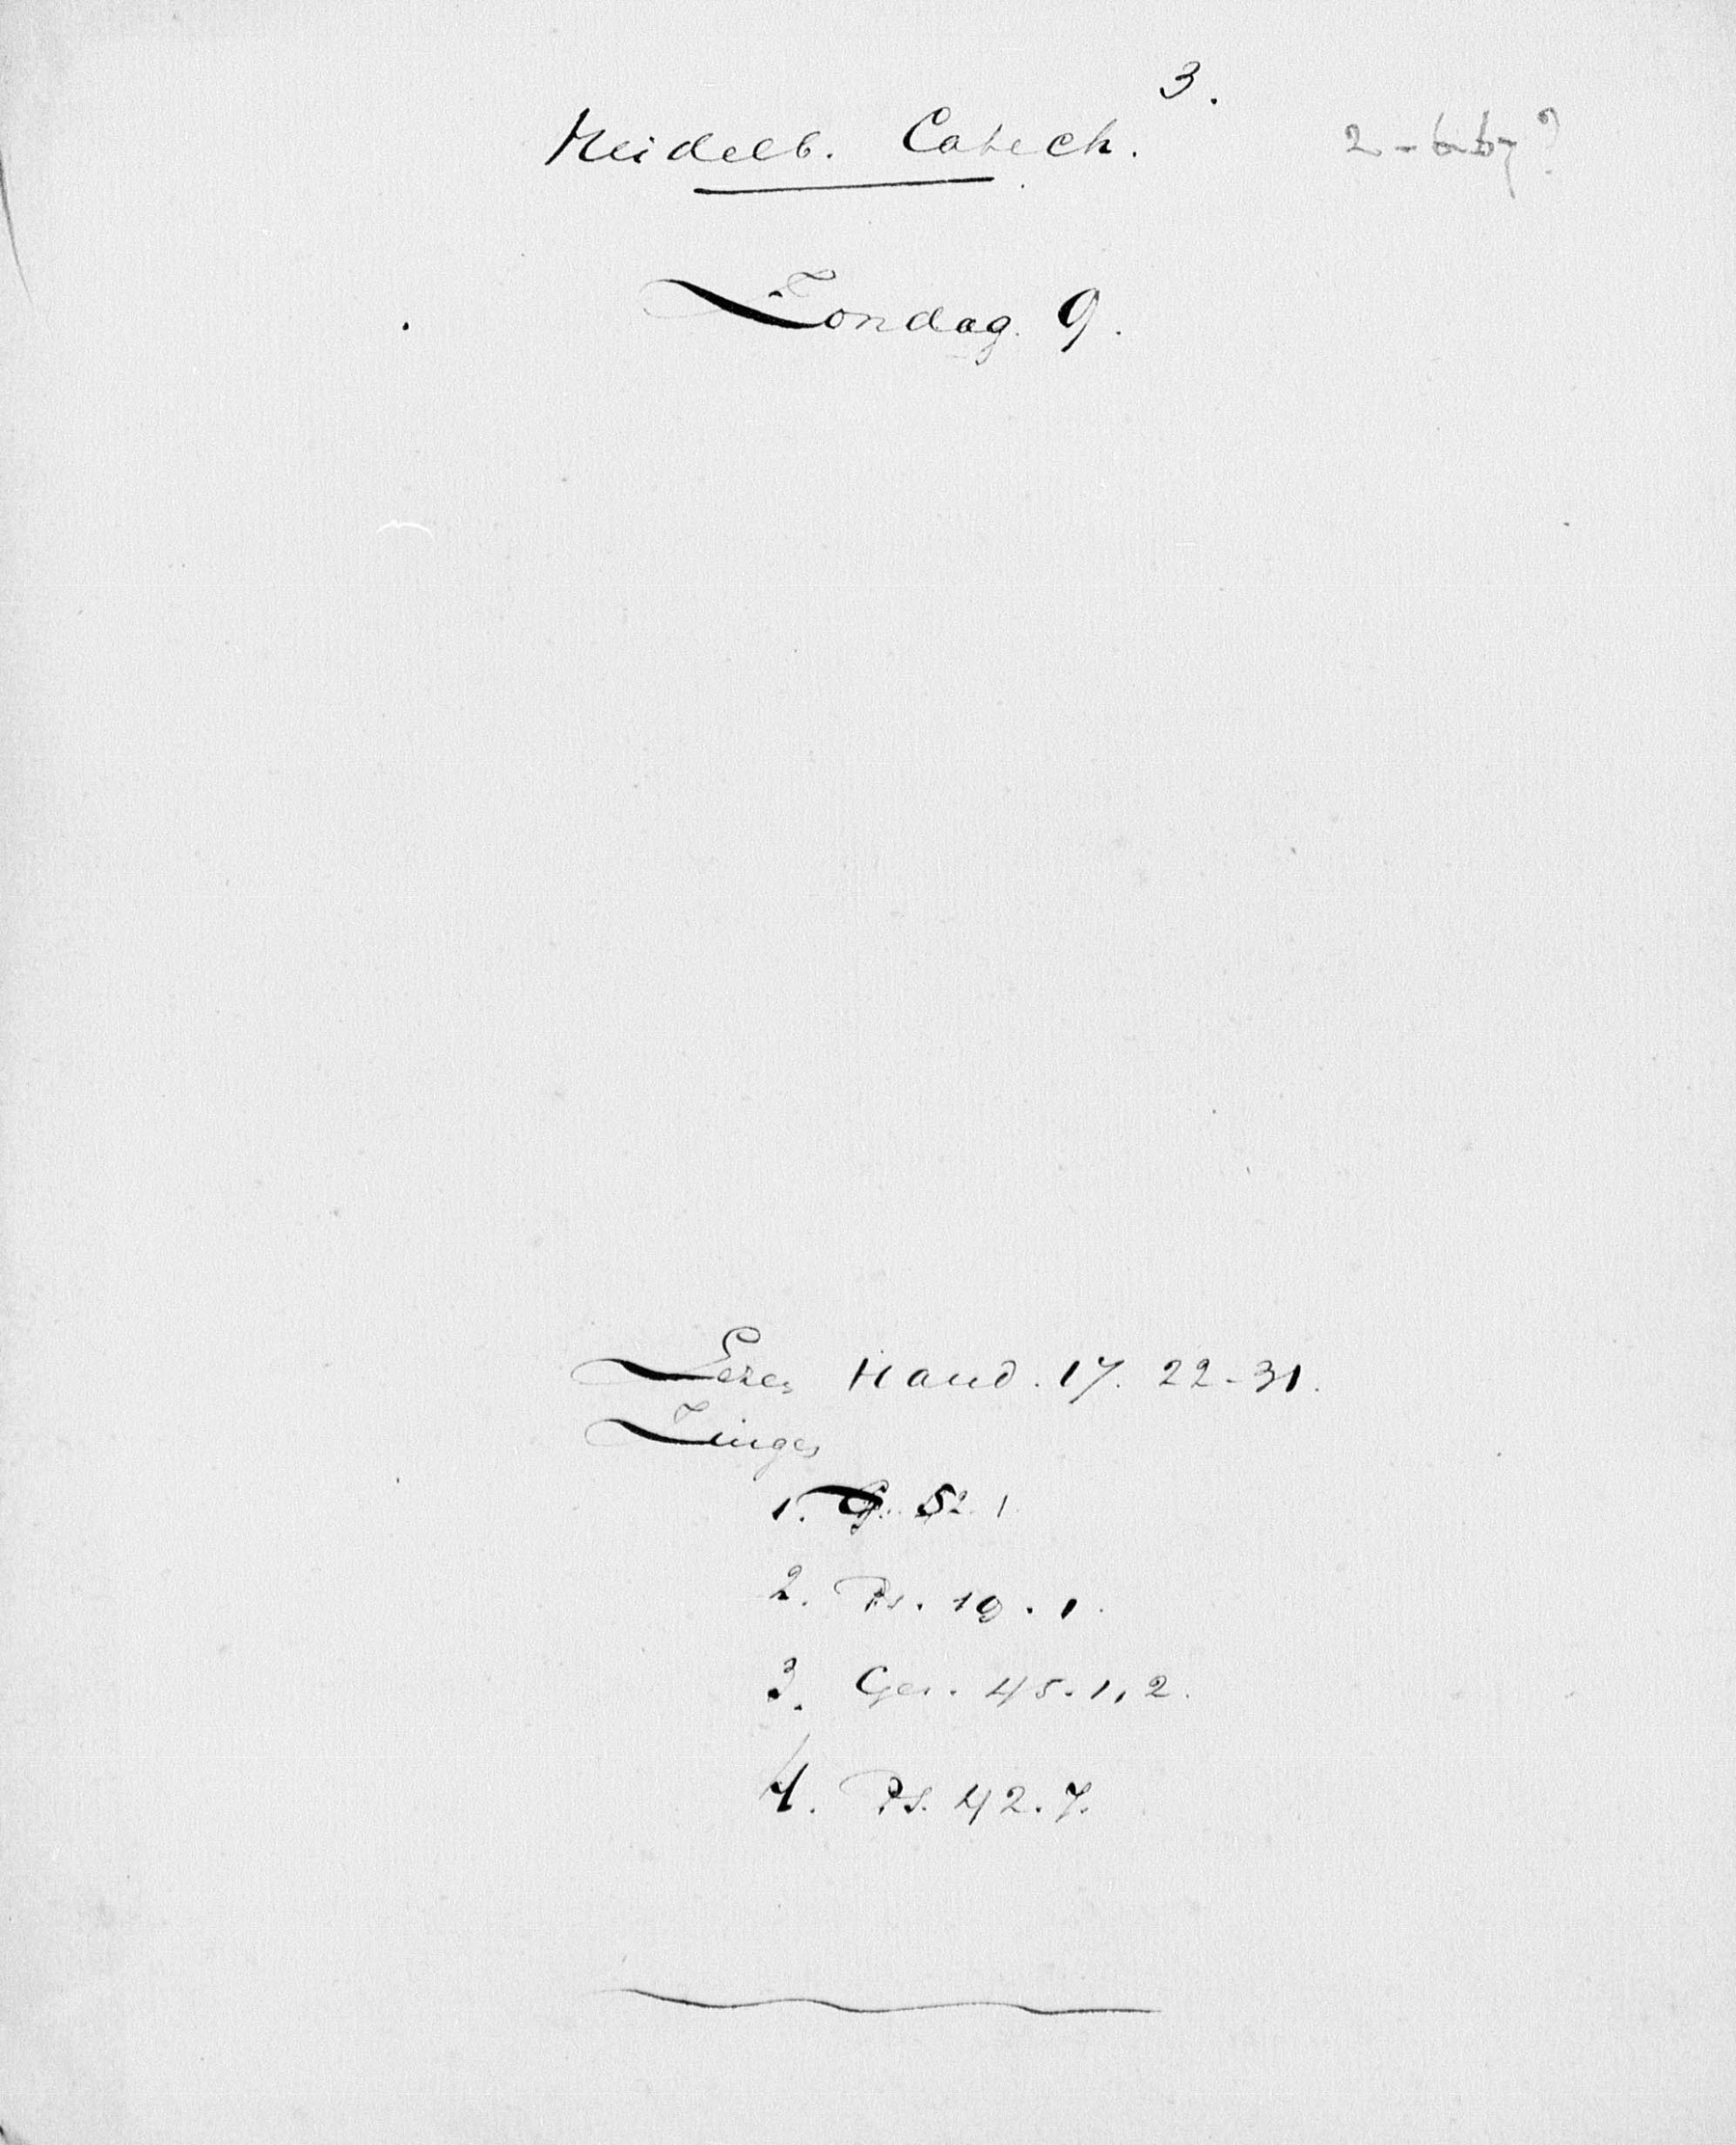 3.
Heidelb. Catech.
Zondag. 9.
Lezen Hand. 17. 22-31.
Zingen
1. G. 52. 1.
2. Ps. 19. 1.
3. Gez. 45. 1, 2.
4. Ps. 42. 7.